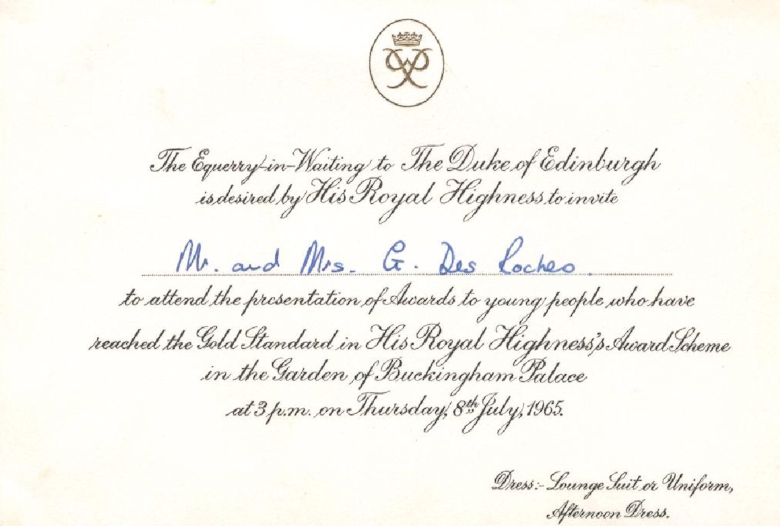 The Equerry-in-Waiting to The Duke of Edinburgh
is desired by His Royal Highness to invite
Mr. and Mrs. G. Des Roches.
to attend the presentation of Awards to young people who have
reached the Gold Standard in His Royal Highness's Award Scheme
in the Garden of Buckingham Palace
at 3 p.m. on Thursday, 8th July, 1965.
Dress:- Lounge Suit or Uniform,
Afternoon Dress.